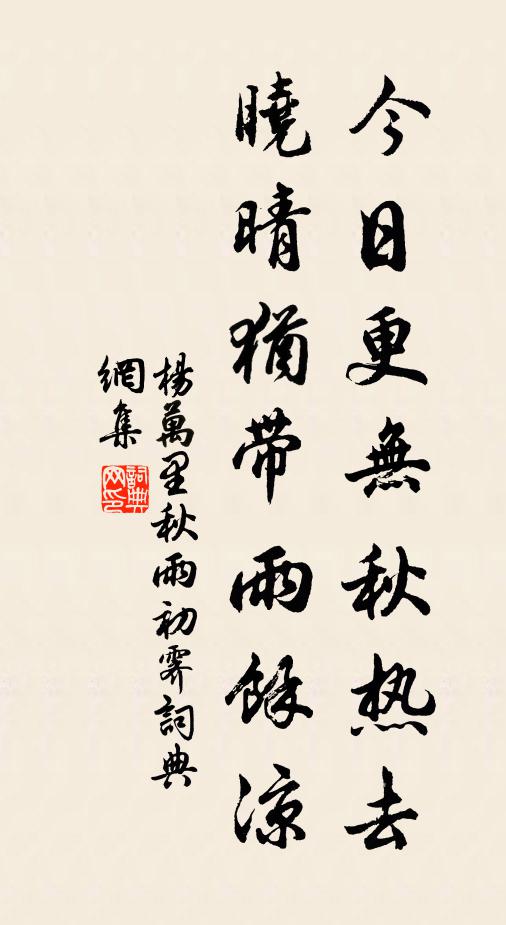 今日更無秋热去
曉晴猶帶雨餘凉
楊萬里秋雨初霽詞典
網集
詞典網印